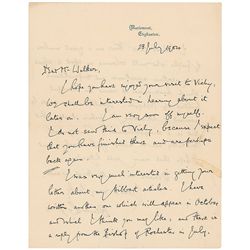 Mariemont,
Edgbaston.
23 July, 1920
Dear Mr Walker,
I hope you have enjoyed your visit to Vichy.
We shall be interested in hearing about it
later on. I am very soon off myself.
I do not send this to Vichy, because I expect
that you have finished there and are perhaps
back again.
I was very much interested in getting your
letter about my Hibbert article. I have
written another one which will appear in October,
and which I think you may like; and there is
a reply from the Bishop of Rochester in July.